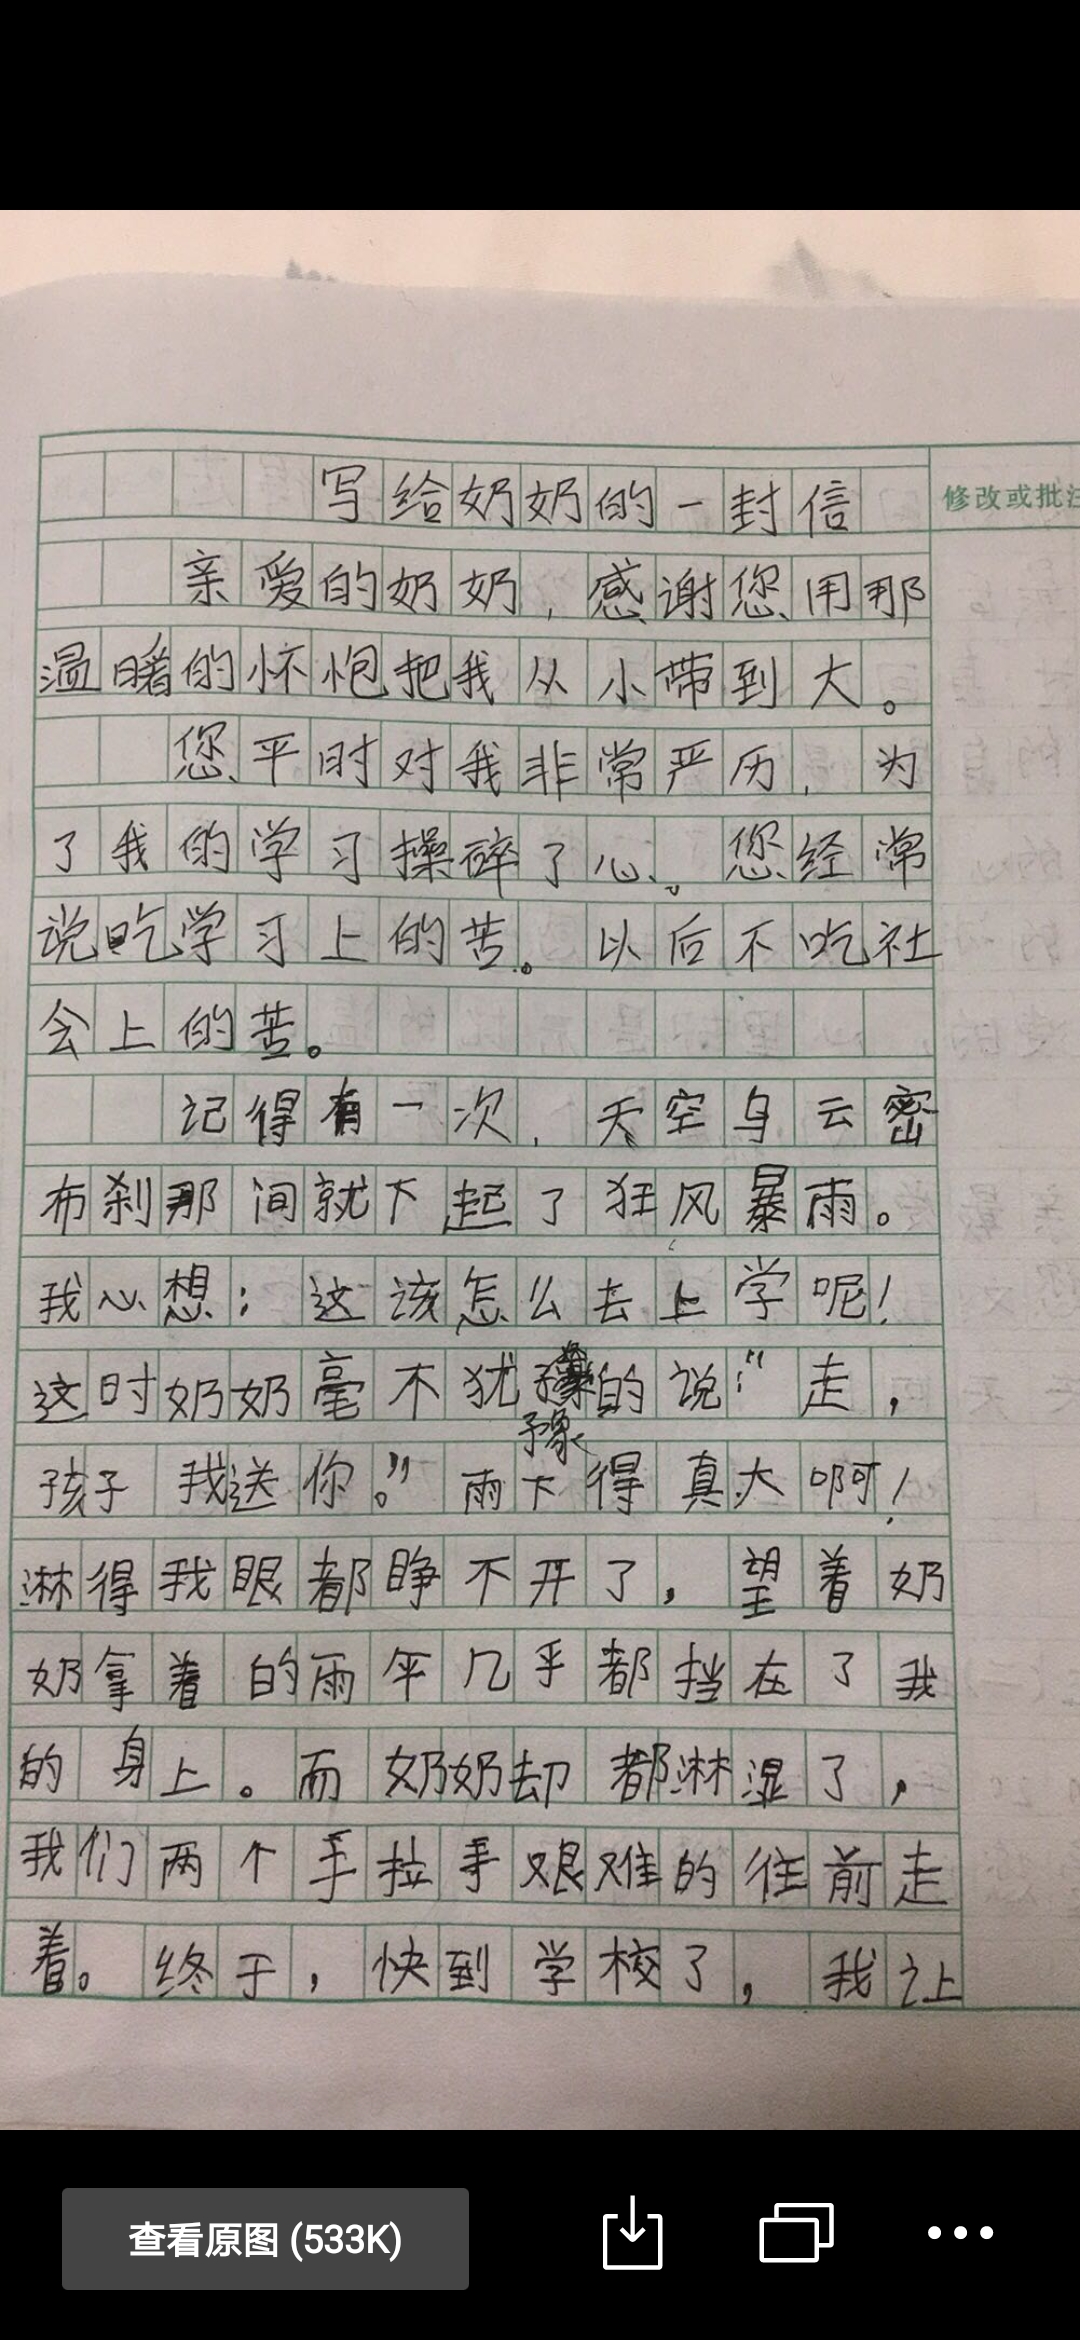 写给奶奶的一封信
修改或批注
亲爱的奶奶，感谢您用那
温暖的怀抱把我从小带到大。
您平时对我非常严历，为
了我的学习操碎了心。您经常
说吃学习上的苦。以后不吃社
会上的苦。
记得有一次，天空乌云密
布刹那间就下起了狂风暴雨。
我心想：这该怎么去上学呢！
这时奶奶毫不犹豫的说：“走，
孩子我送你。”雨下得真大啊！
淋得我眼都睁不开了，望着奶
奶拿着的雨伞几乎都挡在了我
的身上。而奶奶却都淋湿了，
我们两个手拉手艰难的往前走
着。终于，快到学校了，我让
查看原图 (533K)